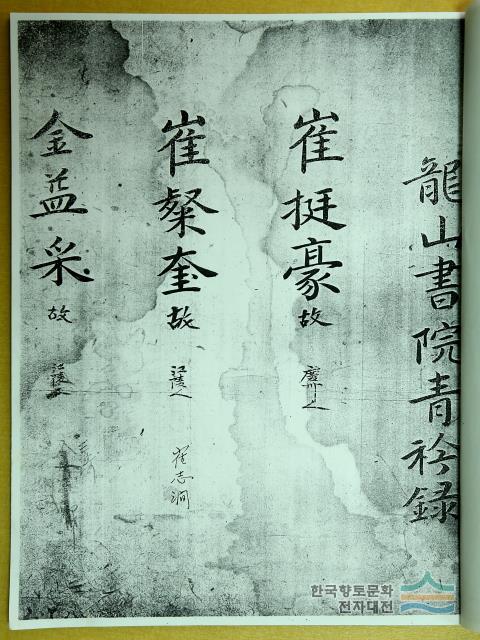 龍山書院青衿録
崔挺豪 故 慶州人
崔粲奎 故 江陵人 崔志洞
金益采 故 江陵人
한국향토문화
전자대전